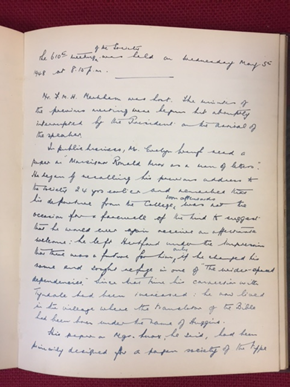 of the Society
The 610th meeting was held on Wednesday May 5th
948 at 8.15 p.m.
Mr F.M.H. Markham was host. The minutes of
the previous meeting was begun but abruptly
interrupted by the President on the arrival of
the speaker.
In public business, Mr Evelyn Waugh read a
paper on "Monsignor Ronald Knox as a man of letters".
He began by recalling his previous address to
the society 24 years earlier, and remarked that
soon afterwards
his departure from the College, was not the
occasion for a farewell of the kind to suggest
that he would ever again receive an affectionate
welcome: he left Hertford under the impression
only
that there was a future for him, if he changed his
name and sought refuge in one of "the wider spread
dependencies". Since that time his connection with
Tyndale had been increased: he now lived
in the village where the translator of the Bible
had been born under the name of Huggins.
His paper on Mgr. Knox, he said, had been
primarily designed for a paper society of the type